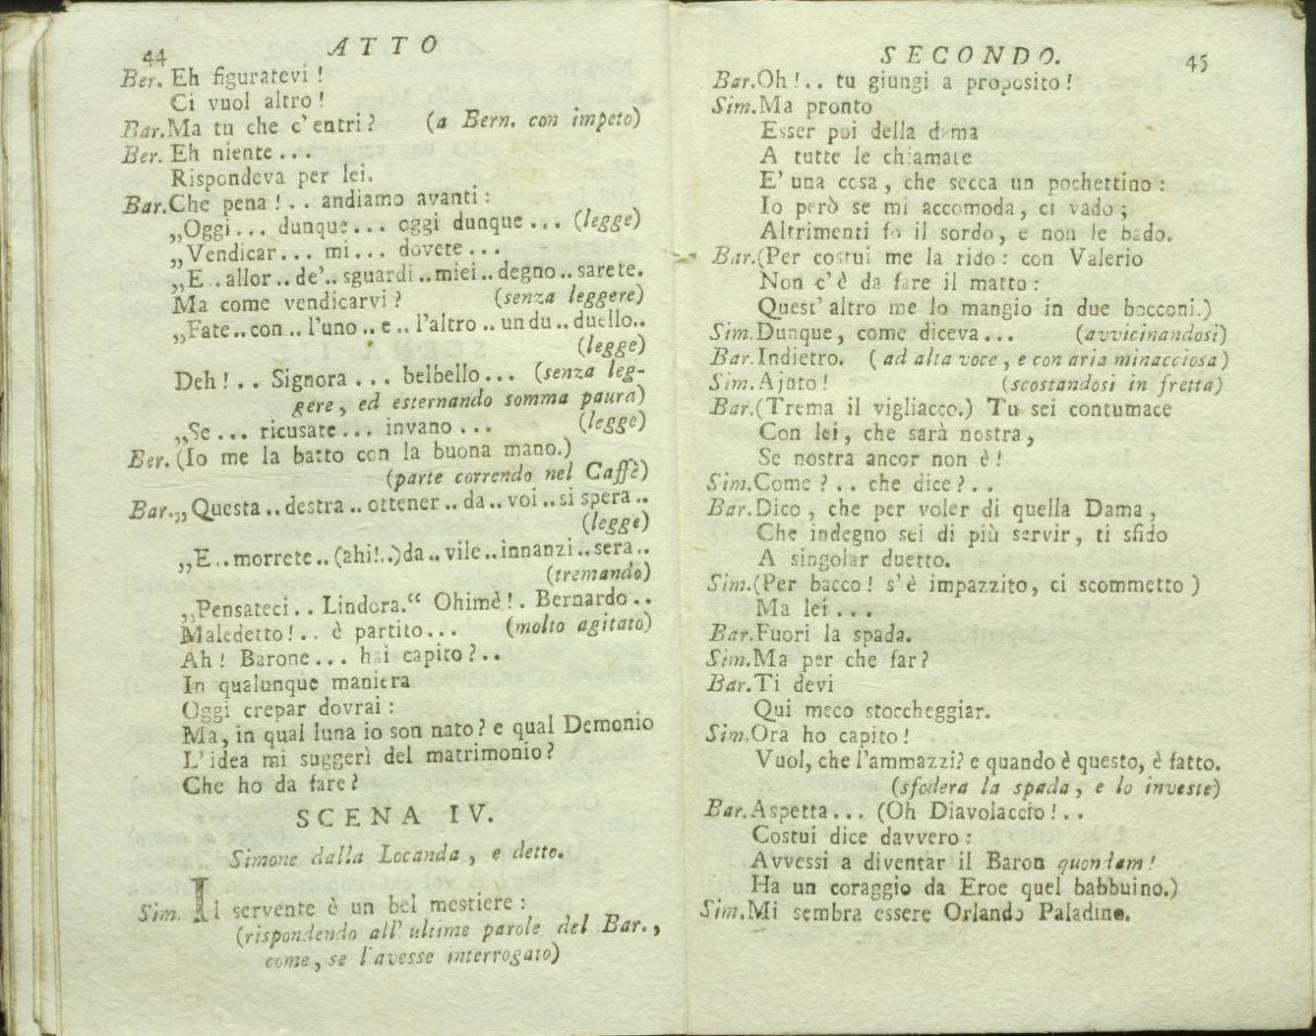 44
ATTO
Ber. Eh figuratevi !
Ci vuol altro !
Bar. Ma tu che c'entri ? (a Bern. con impeto)
Ber. Eh niente ...
Rispondeva per lei.
Bar. Che pena ! .. andiamo avanti :
„Oggi ... dunque ... oggi dunque ... (legge)
„Vendicar ... mi ... dovete ...
„E .. allor .. de' .. sguardi .. miei .. degno .. sarete.
Ma come vendicarvi ? (senza leggere)
„Fate .. con .. l'uno .. e .. l'altro .. un du .. duello ..
(legge)
Deh ! .. Signora ... belbello ... (senza leg-
gere, ed esternando somma paura)
„Se ... ricusate ... invano ... (legge)
Ber. (Io me la batto con la buona mano.)
(parte correndo nel Caffè)
Bar. „Questa .. destra .. ottener .. da .. voi .. si spera ..
(legge)
„E .. morrete .. (ahi! ..) da .. vile .. innanzi .. sera ..
(tremando)
„Pensateci .. Lindora.“ Ohimè ! . Bernardo ..
Maledetto ! .. è partito ... (molto agitato)
Ah ! Barone ... hai capito ? ..
In qualunque maniera
Oggi crepar dovrai :
Ma, in qual luna io son nato ? e qual Demonio
L'idea mi suggerì del matrimonio ?
Che ho da fare ?
SCENA IV.
Simone dalla Locanda, e detto.
Sim. Il servente è un bel mestiere :
(rispondendo all'ultime parole del Bar.,
come, se l'avesse interrogato)
SECONDO.
45
Bar. Oh ! .. tu giungi a proposito !
Sim. Ma pronto
Esser poi della dama
A tutte le chiamate
E' una cosa, che secca un pochettino :
Io però se mi accomoda, ci vado ;
Altrimenti fo il sordo, e non le bado.
Bar. (Per costui me la rido : con Valerio
Non c'è da fare il matto :
Quest'altro me lo mangio in due bocconi.)
Sim. Dunque, come diceva ... (avvicinandosi)
Bar. Indietro. (ad alta voce, e con aria minacciosa)
Sim. Ajuto ! (scostandosi in fretta)
Bar. (Trema il vigliacco.) Tu sei contumace
Con lei, che sarà nostra,
Se nostra ancor non è !
Sim. Come ? .. che dice ? ..
Bar. Dico, che per voler di quella Dama,
Che indegno sei di più servir, ti sfido
A singolar duetto.
Sim. (Per bacco ! s'è impazzito, ci scommetto )
Ma lei ...
Bar. Fuori la spada.
Sim. Ma per che far ?
Bar. Ti devi
Qui meco stoccheggiar.
Sim. Ora ho capito !
Vuol, che l'ammazzi? e quando è questo, è fatto.
(sfodera la spada, e lo investe)
Bar. Aspetta ... (Oh Diavolaccio ! ..
Costui dice davvero :
Avvessi a diventar il Baron quondam !
Ha un coraggio da Eroe quel babbuino.)
Sim. Mi sembra essere Orlando Paladino.